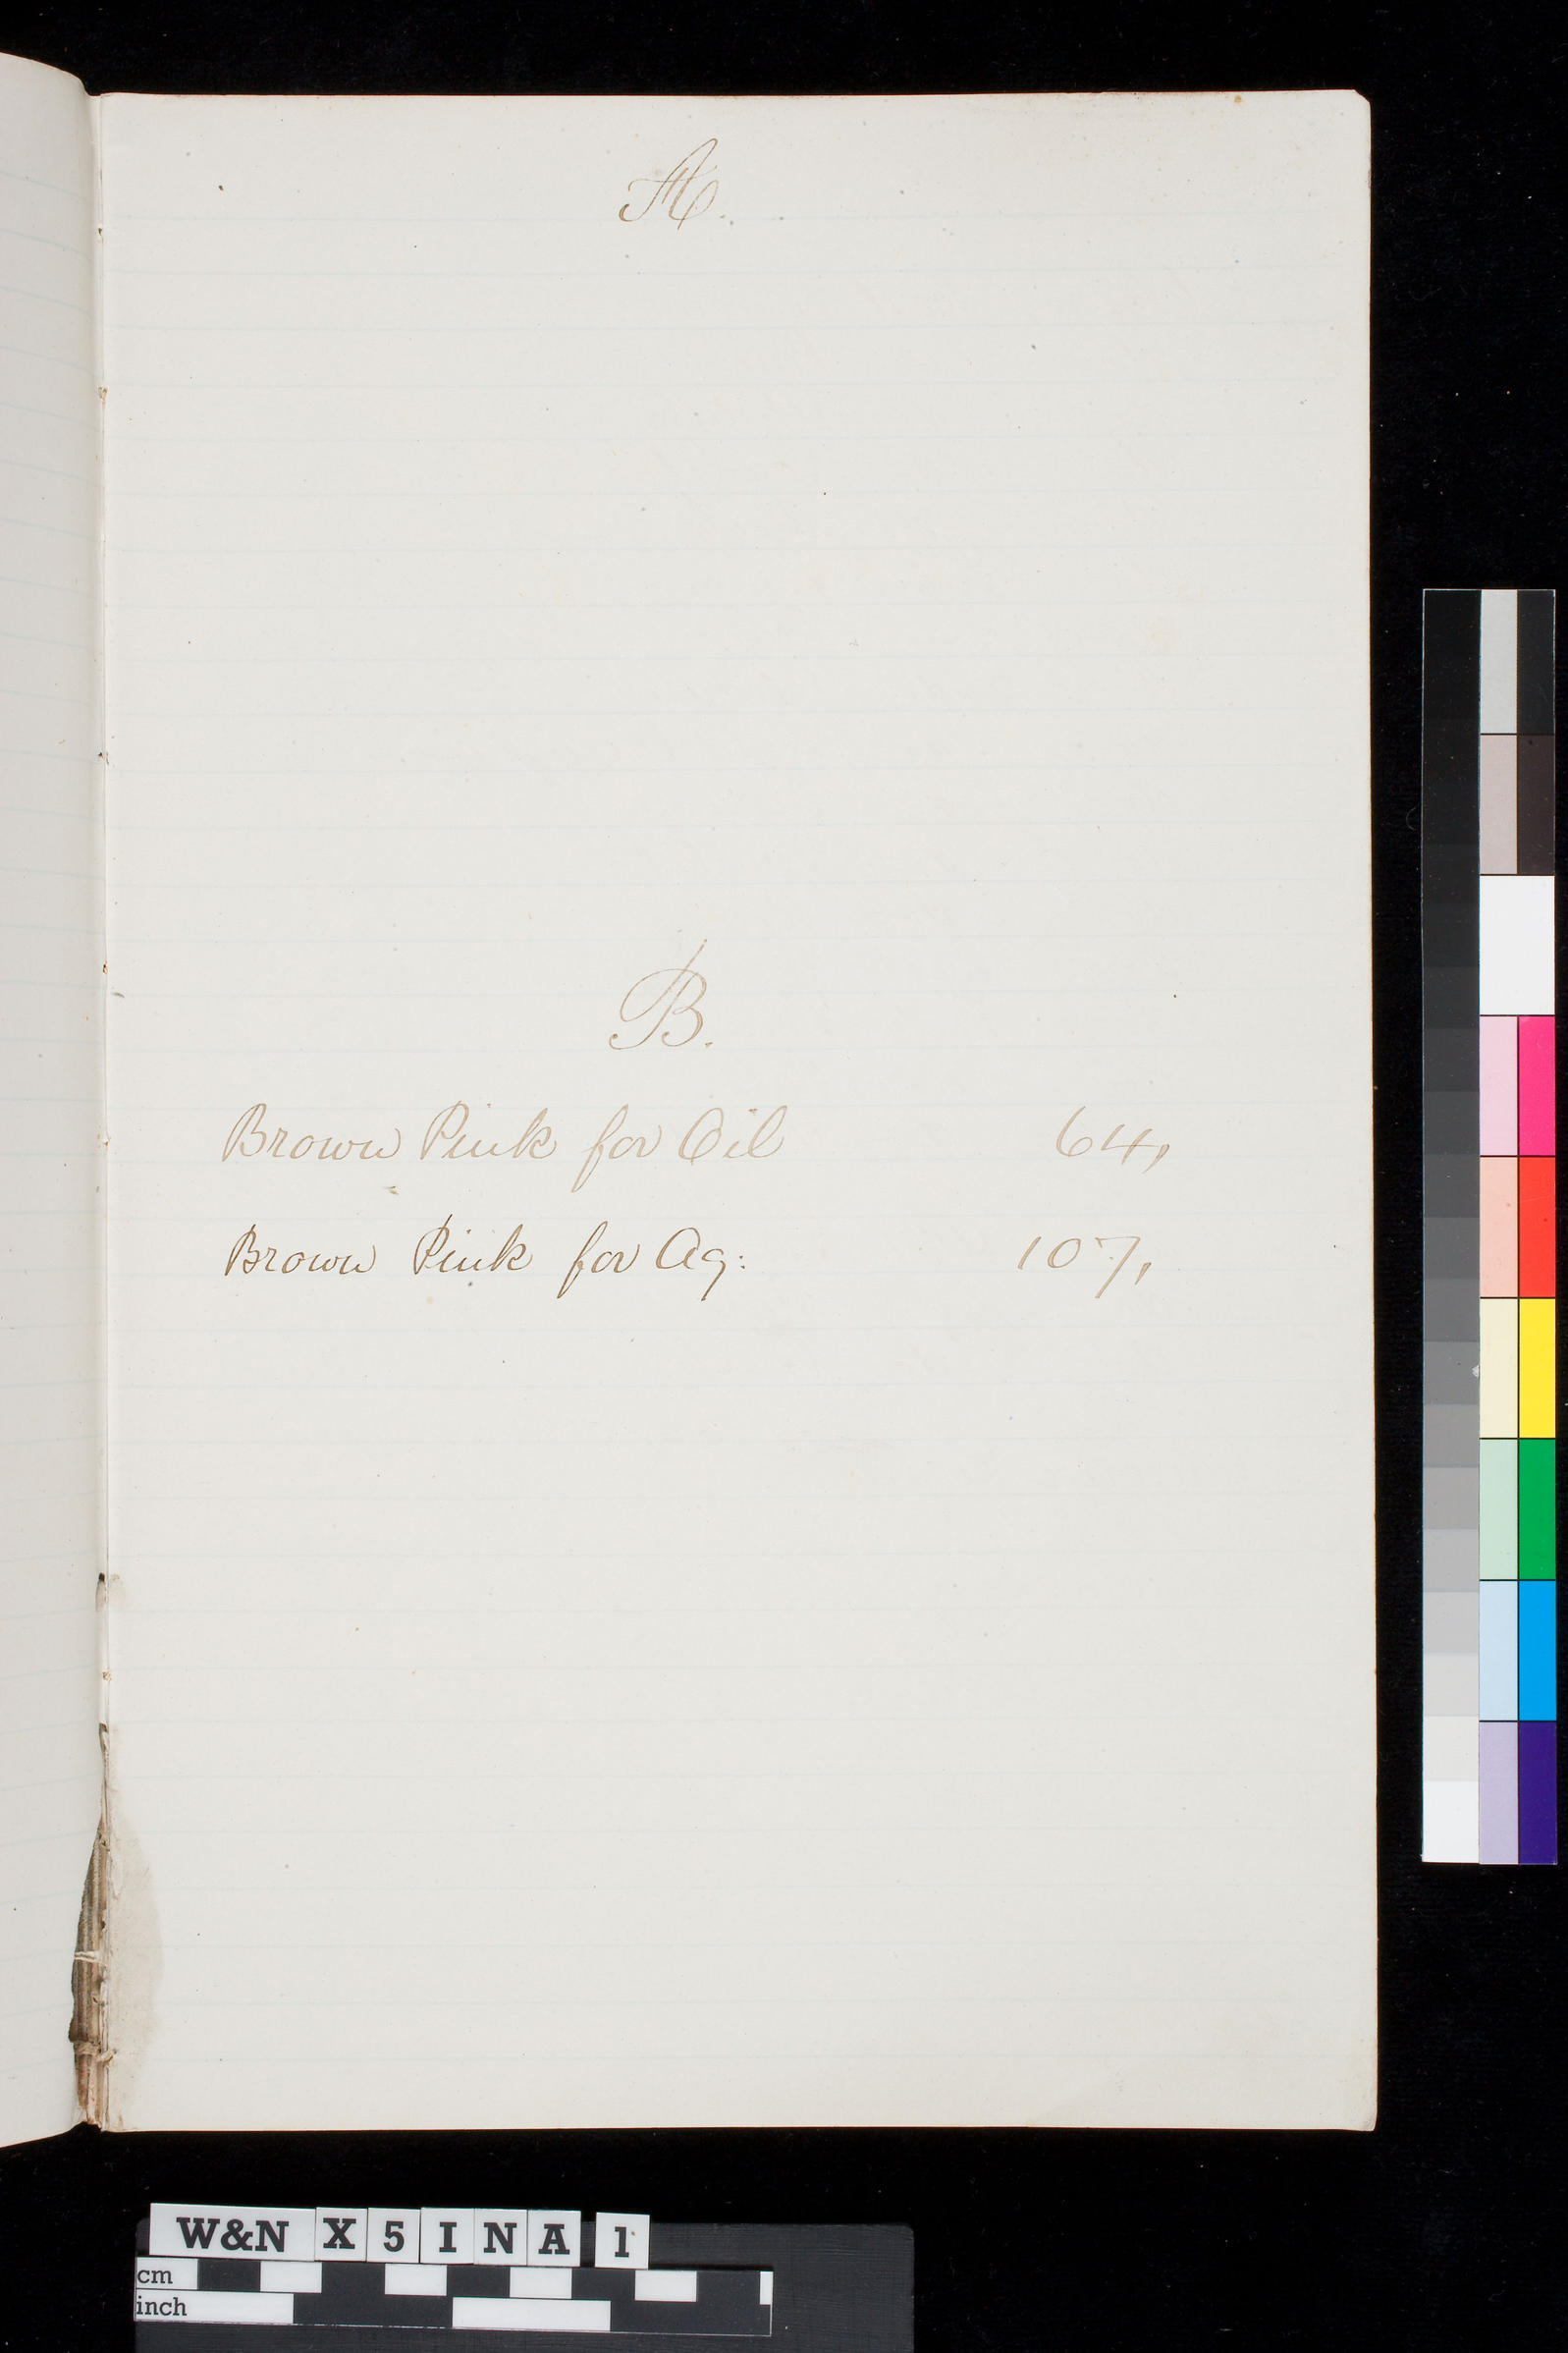 A.
B.
Brown Pink for Oil 64,
Brown Pink for Aq: 107,
W&N X 5 I N A 1
cm
inch